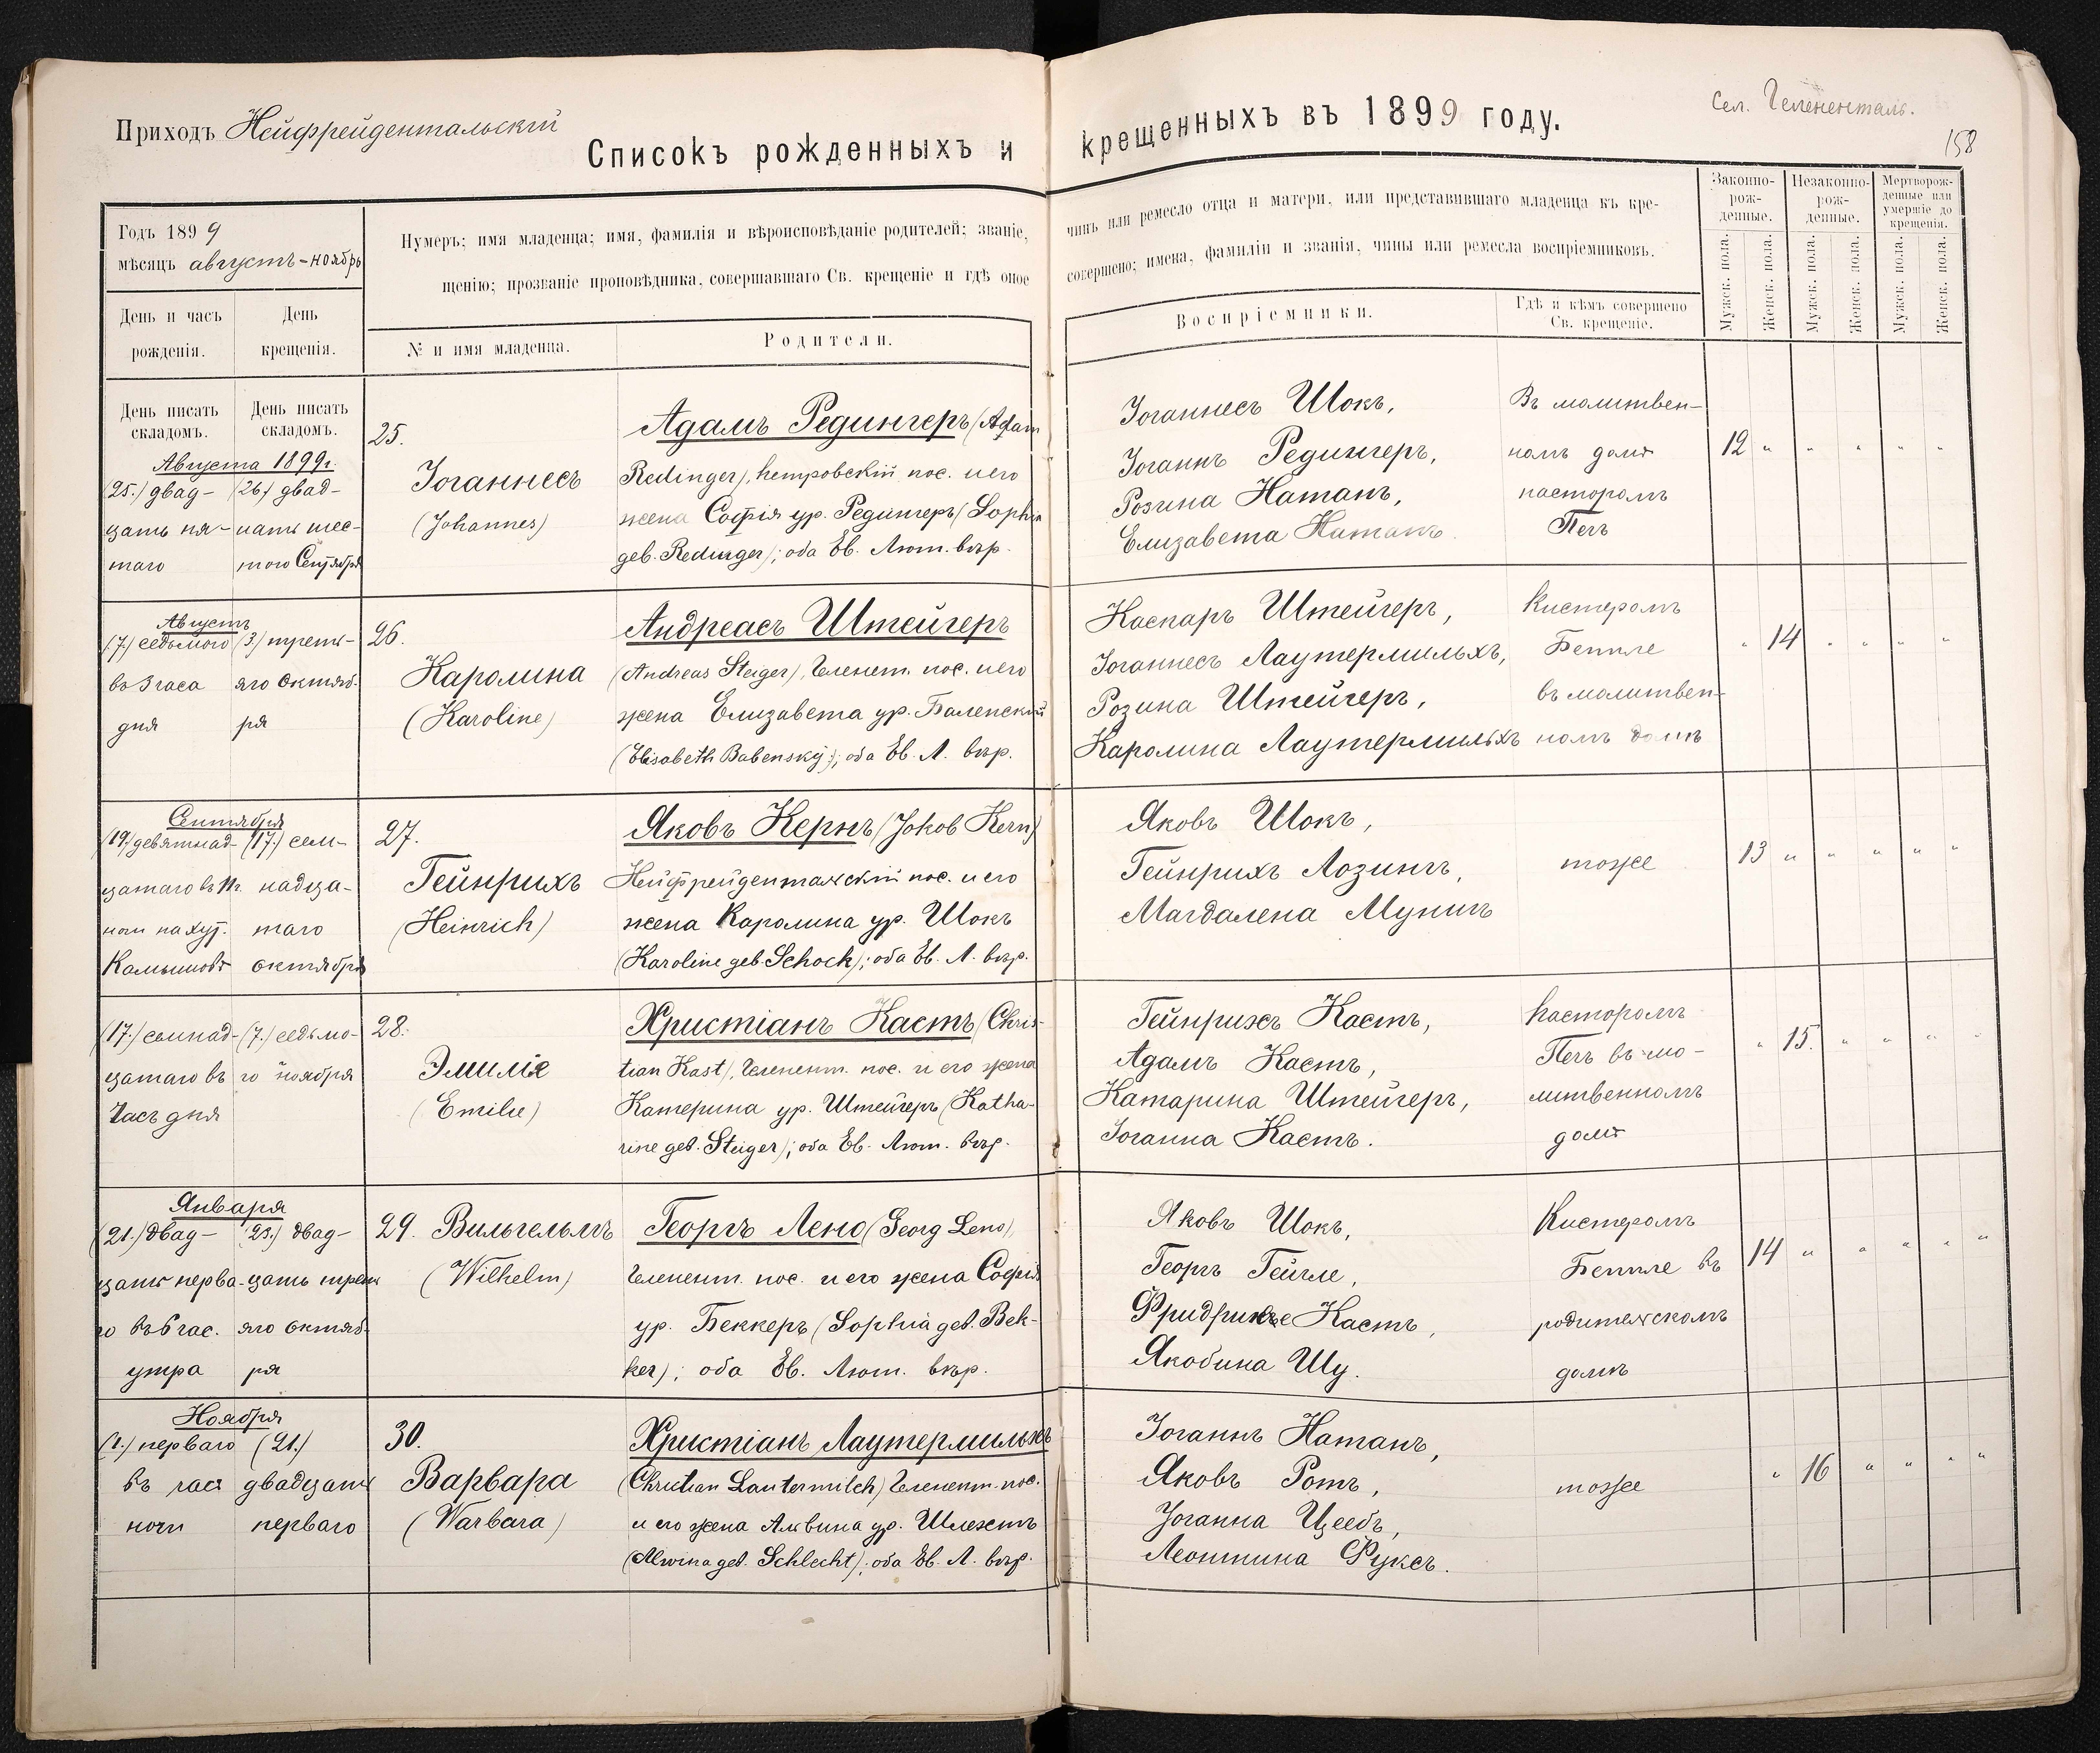 Приходъ Нейфрейдентальскій
Списокъ рожденныхъ и крещенныхъ въ 1899 году.
Сел. Гелененталь.
158
Годъ 1899
мѣсяцъ августъ-ноябрь
Нумеръ; имя младенца; имя, фамилія и вѣроисповѣданіе родителей; званіе, чинъ или ремесло отца и матери, или представившаго младенца къ кре-
щенію; прозваніе проповѣдника, совершавшаго Св. крещеніе и гдѣ оное совершено; имена, фамиліи и званія, чины или ремесла воспріемниковъ.
Законно-
рож-
денные.
Незаконно-
рож-
денные.
Мертворож-
денные или
умершіе до
крещенія.
Мужск. пола.
Женск. пола.
Мужск. пола.
Женск. пола.
Мужск. пола.
Женск. пола.
День и часъ
рожденія.
День
крещенія.
№ и имя младенца.
Родители.
Воспріемники.
Гдѣ и кѣмъ совершено
Св. крещеніе.
День писать
складомъ.
День писать
складомъ.
Августа 1899г.
(25.) двад-
цать пя-
таго
(26.) двад-
цать шес-
того Сентября
25.
Іоганнесъ
(Johannes)
Адамъ Редингеръ (Adam
Redinger), петровскій пос. и его
жена Софія ур. Редингеръ (Sophia
geb. Redinger); оба Ев. Лют. вѣр.
Іоганнесъ Шокъ,
Іоганнъ Редингеръ,
Розина Натанъ,
Елизавета Натанъ.
Въ молитвен-
номъ домѣ
пасторомъ
Пехъ
12 " " " " "
Августъ
(7.) седьмого
въ 3 часа
дня
(3.) треть-
яго октяб-
ря
26.
Каролина
(Karoline)
Андреасъ Штейгеръ
(Andreas Steiger), Геленент. пос. и его
жена Елизавета ур. Баленскій
(Elisabeth Babensky); оба Ев. Л. вѣр.
Каспаръ Штейгеръ,
Іоганнесъ Лаутермильхъ,
Розина Штейгеръ,
Каролина Лаутермильхъ
Кистеромъ
Беппле
въ молитвен-
номъ домѣ
" 14 " " " "
Сентября
(19.) девятнад-
цатаго въ 11 ч.
ночи на хут.
Камышовѣ
(17.) сем-
надца-
таго
октября
27.
Гейнрихъ
(Heinrich)
Яковъ Кернъ (Jakob Kern)
Нейфрейдентальскій пос. и его
жена Каролина ур. Шокъ
(Karoline geb. Schock); оба Ев. Л. вѣр.
Яковъ Шокъ,
Гейнрихъ Лозингъ,
Магдалена Муншъ
тоже
13 " " " " "
(17.) семнад-
цатаго въ
Часъ дня
(7.) седьмо-
го ноября
28.
Эмиліе
(Emilie)
Христіанъ Кастъ (Chris-
tian Kast), Геленент. пос. и его жена
Катерина ур. Штейгеръ (Katha-
rine geb. Steiger); оба Ев. Лют. вѣр.
Гейнрихъ Кастъ,
Адамъ Кастъ,
Катарина Штейгеръ,
Іоганна Кастъ.
пасторомъ
Пехъ въ мо-
литвенномъ
домѣ
" 15. " " " "
Января
(21.) двад-
цать перва-
го въ 6 час.
утра
(23.) двад-
цать треть
яго октяб-
ря
29. Вильгельмъ
(Wilhelm)
Георгъ Лено (Georg Leno),
Геленент. пос. и его жена Софія
ур. Беккеръ (Sophia geb. Bek-
ker); оба Ев. Лют. вѣр.
Яковъ Шокъ,
Георгъ Гейгле,
Фридрике Кастъ,
Якобина Шу.
Кистеромъ
Беппле въ
родительскомъ
домѣ
14 " " " " "
Ноября
(1.) перваго
въ часъ
ночи
(21.)
двадцать
перваго
30.
Варвара
(Warbara)
Христіанъ Лаутермильхъ
(Christian Lautermilch) Геленент. пос.
и его жена Альвина ур. Шлехтъ
(Alwina geb. Schlecht); оба Ев. Л. вѣр.
Іоганнъ Натанъ,
Яковъ Ротъ,
Іоганна Цеебъ,
Леонтина Фуксъ.
тоже
" 16 " " " "